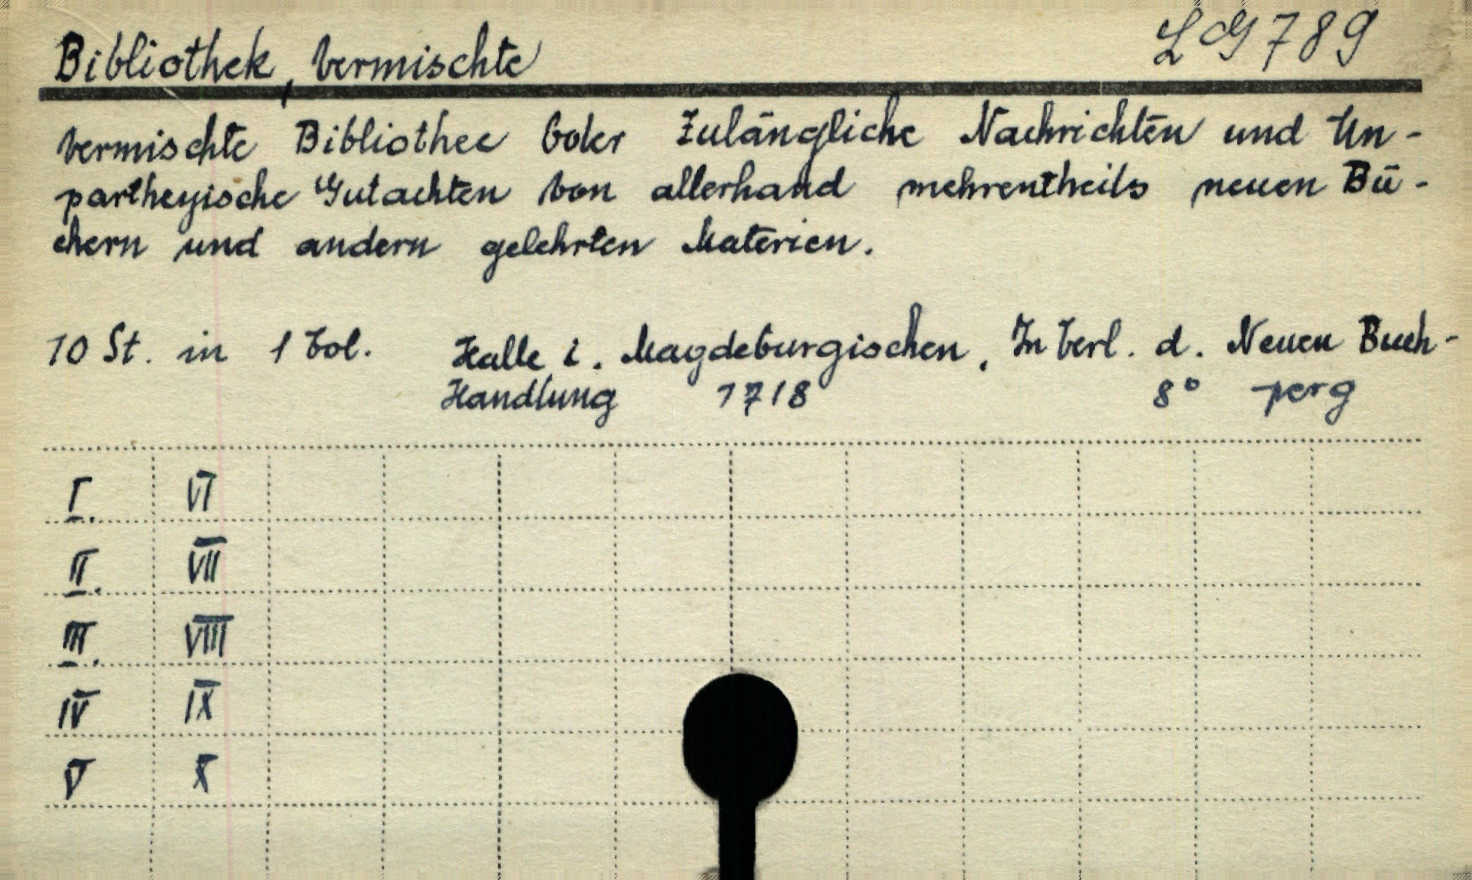 LG 789
Bibliothek, Vermischte
Vermischte Bibliothec Oder Zulängliche Nachrichten und Un-
partheyische Gutachten von allerhand mehrentheils neuen Bü-
chern und andern gelehrten Materien.
10 St. in 1 Vol. Halle i. Magdeburgischen, In Verl. d. Neuen Buch-
Handlung 1718 8° perg
I. VI
II. VII
III. VIII
IV IX
V X